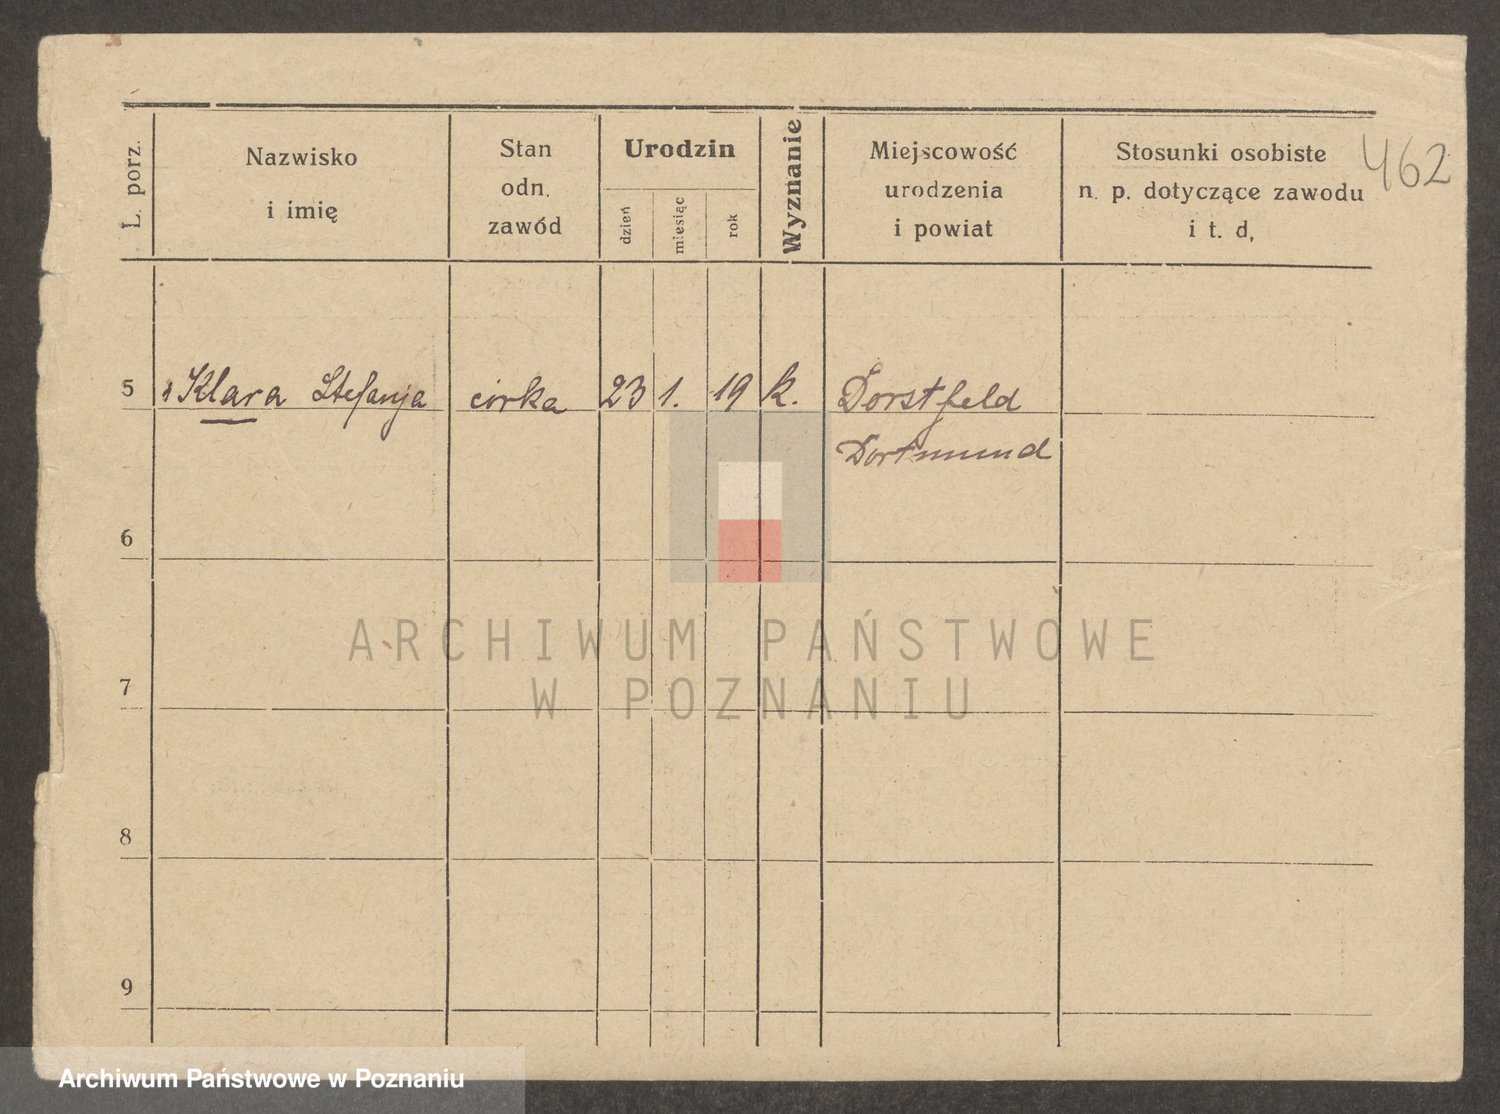 462
L. porz.
Nazwisko
i imię
Stan
odn.
zawód
Urodzin
dzień
miesiąc
rok
Wyznanie
Miejscowość
urodzenia
i powiat
Stosunki osobiste
n. p. dotyczące zawodu
i t. d,
5 Klara Stefanja córka 23 1. 19 k. Dorstfeld
Dortmund
6
7
8
9
ARCHIWUM PAŃSTWOWE
W POZNANIU
Archiwum Państwowe w Poznaniu